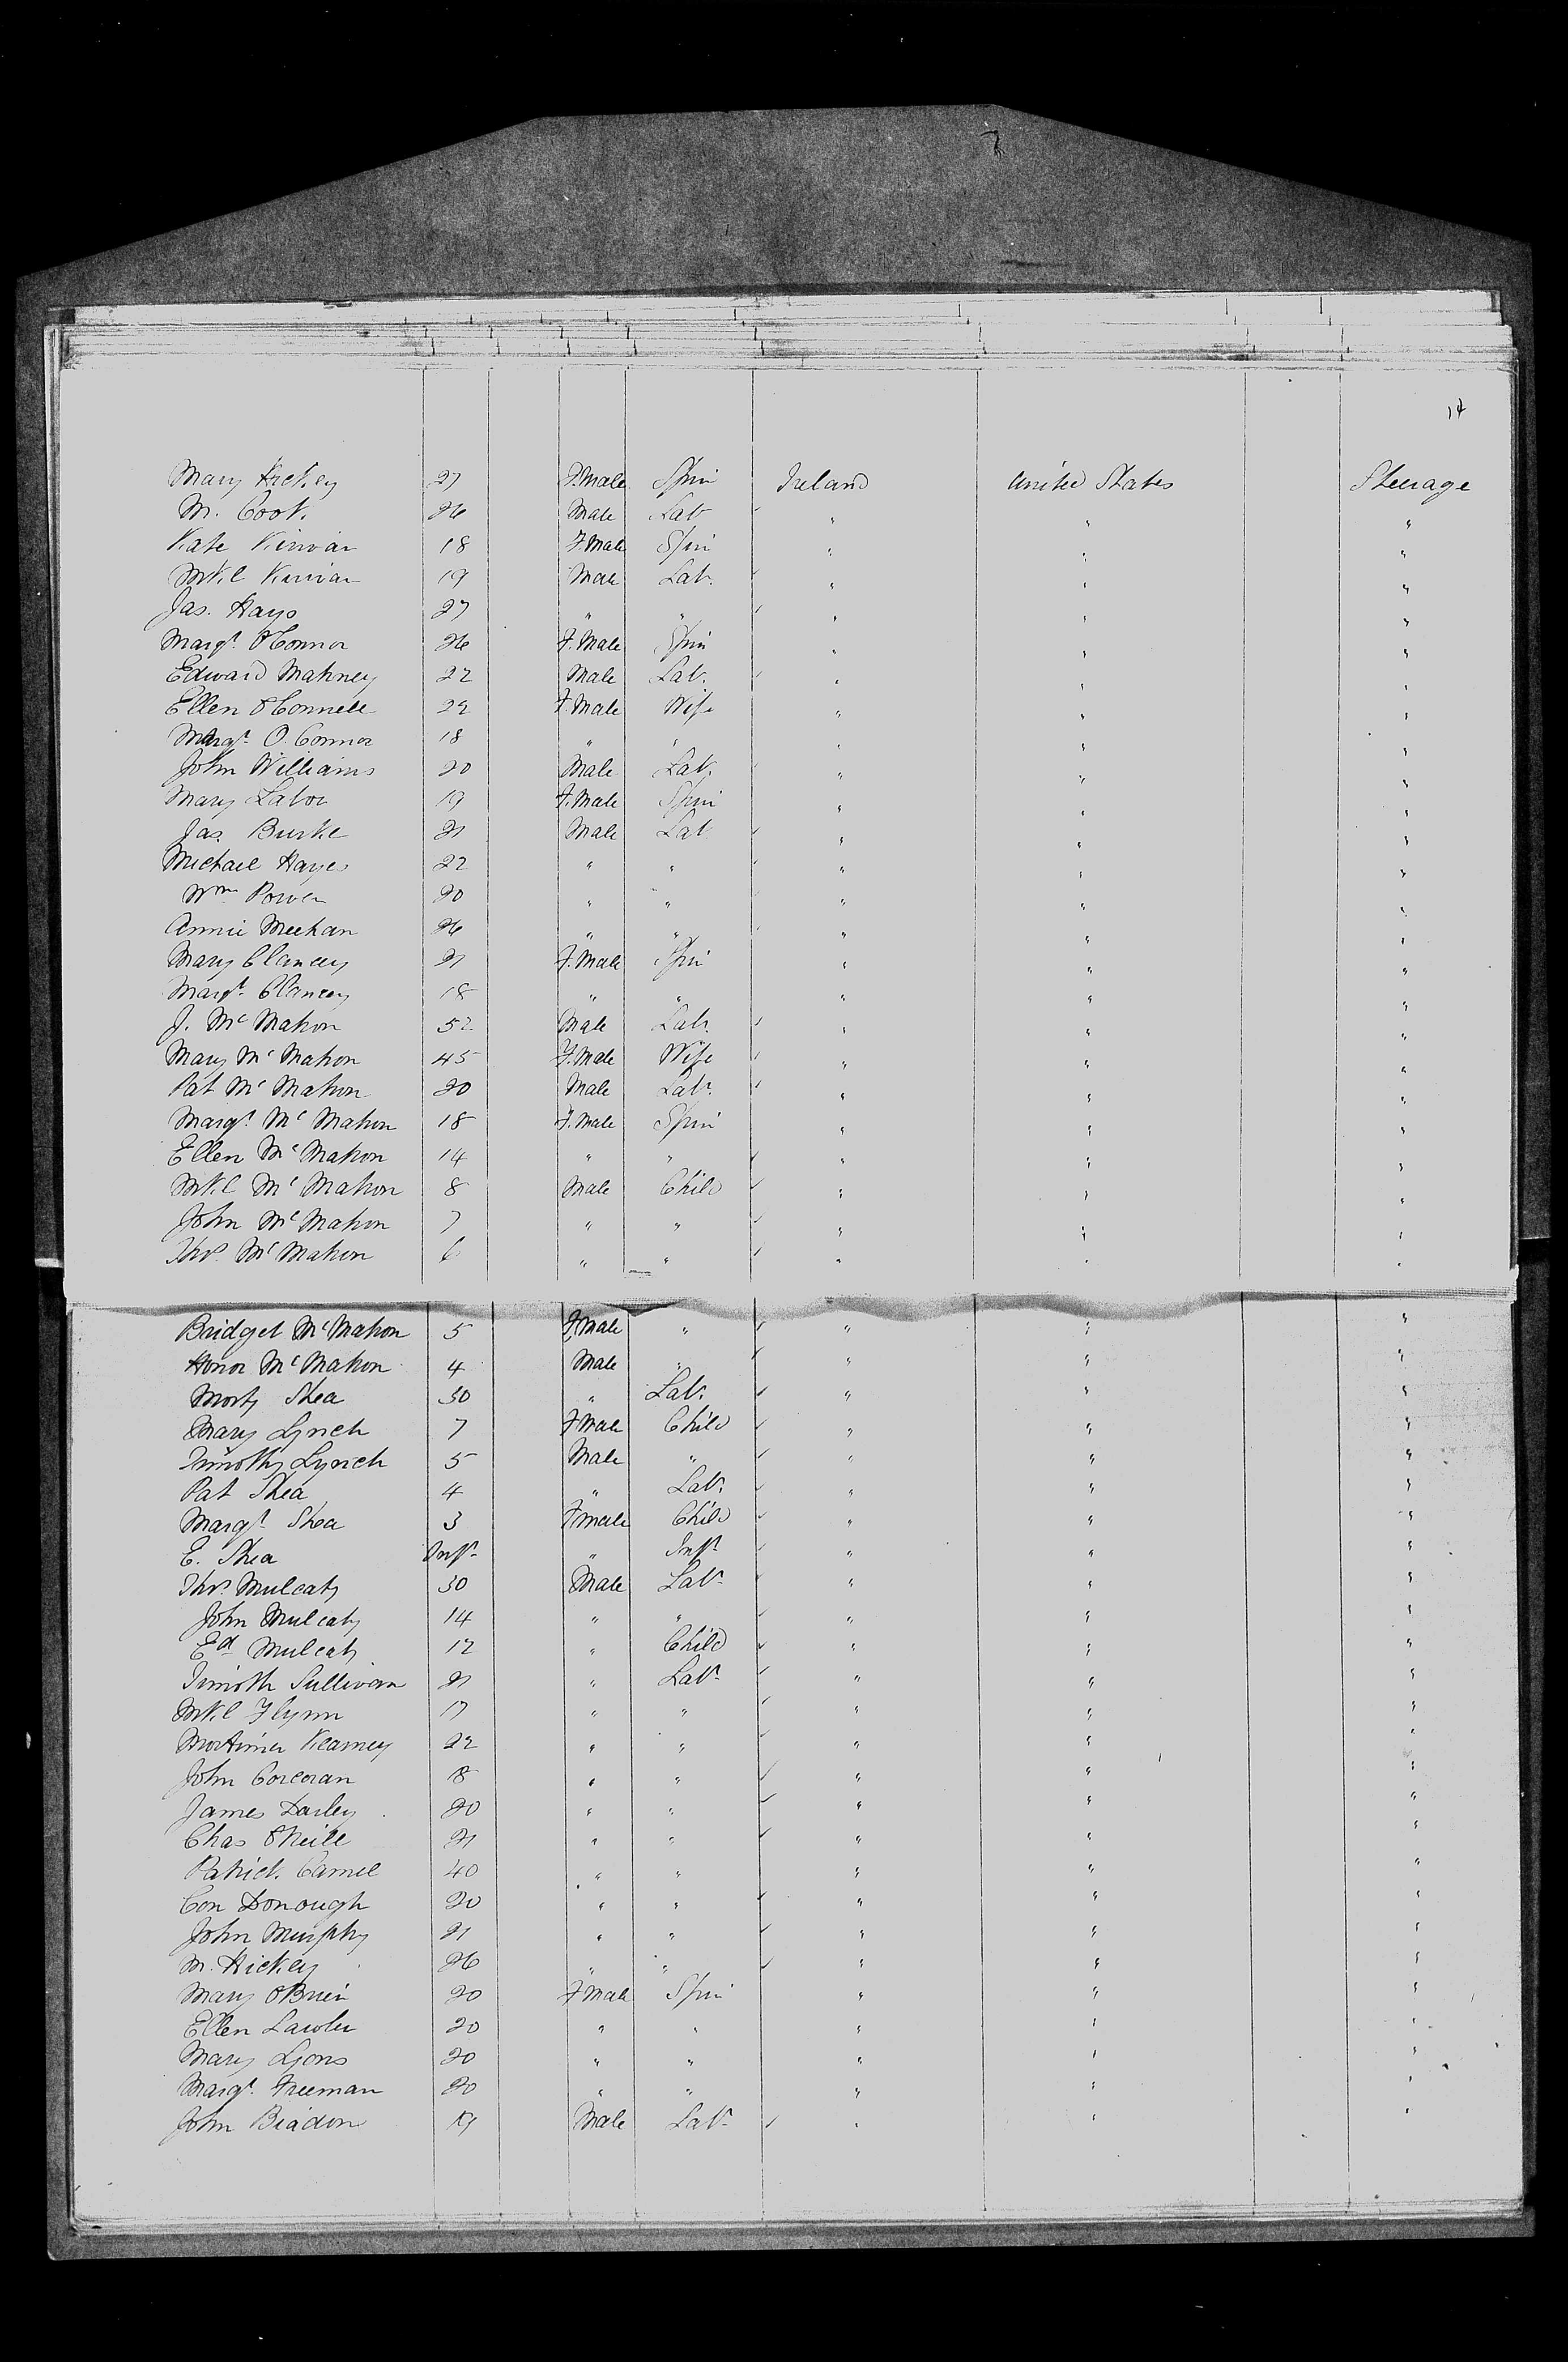 14
Mary Hickey 27 F.Male Spin Ireland United States Steerage
M. Cook. 26 Male Lab " " "
Kate Kirwan 18 F.Male Spin " " "
Mkl Kirwan 19 Male Lab. " " "
Jas. Hays 27 " " " " "
Margt. O'Connor 26 F.Male Spin " " "
Edward Mahney 22 Male Lab. " " "
Ellen O'Connell 22 F.Male Wife " " "
Margt. O. Connor 18 " " " " "
John Williams 20 Male Lab. " " "
Mary Lalor 19 F.Male Spin " " "
Jas. Burke 21 Male Lab " " "
Michael Hayes 22 " " " " "
Wm Power 20 " " " " "
Annie Meehan 26 " " " " "
Mary Clancey 21 F.Male Spin " " "
Margt. Clancey 18 " " " " "
J. McMahon 52 Male Lab. " " "
Mary McMahon 45 F.Male Wife " " "
Pat McMahon 20 Male Lab. " " "
Margt. McMahon 18 F.Male Spin " " "
Ellen McMahon 14 " " " " "
Mkl McMahon 8 Male Child " " "
John McMahon 7 " " " " "
Thos. McMahon 6 " " " " "
Bridget McMahon 5 F.Male " " " "
Honor McMahon 4 Male " " " "
Morty Shea 30 " Lab. " " "
Mary Lynch 7 F.Male Child " " "
Timothy Lynch 5 Male " " " "
Pat Shea 4 " Lab. " " "
Margt. Shea 3 F.male Child " " "
E. Shea Inft. " Inft. " " "
Thos. Mulcaty 30 Male Lab. " " "
John Mulcaty 14 " " " " "
Ed Mulcaty 12 " Child " " "
Timoth Sullivan 21 " Lab. " " "
Mkl Flynn 17 " " " " "
Mortimer Kearney 22 " " " " "
John Corcoran 18 " " " " "
James Darley 20 " " " " "
Chas O'Neill 21 " " " " "
Patrick. 40 " " " " "
Con Donough 20 " " " " "
John Murphy 21 " " " " "
M. Hickey 26 " " " " "
Mary O'Brien 20 F.Male Spin " " "
Ellen Lawler 20 " " " " "
Mary Lyons 20 " " " " "
Margt. Freeman 20 " " " " "
John 19 Male Lab. " " "